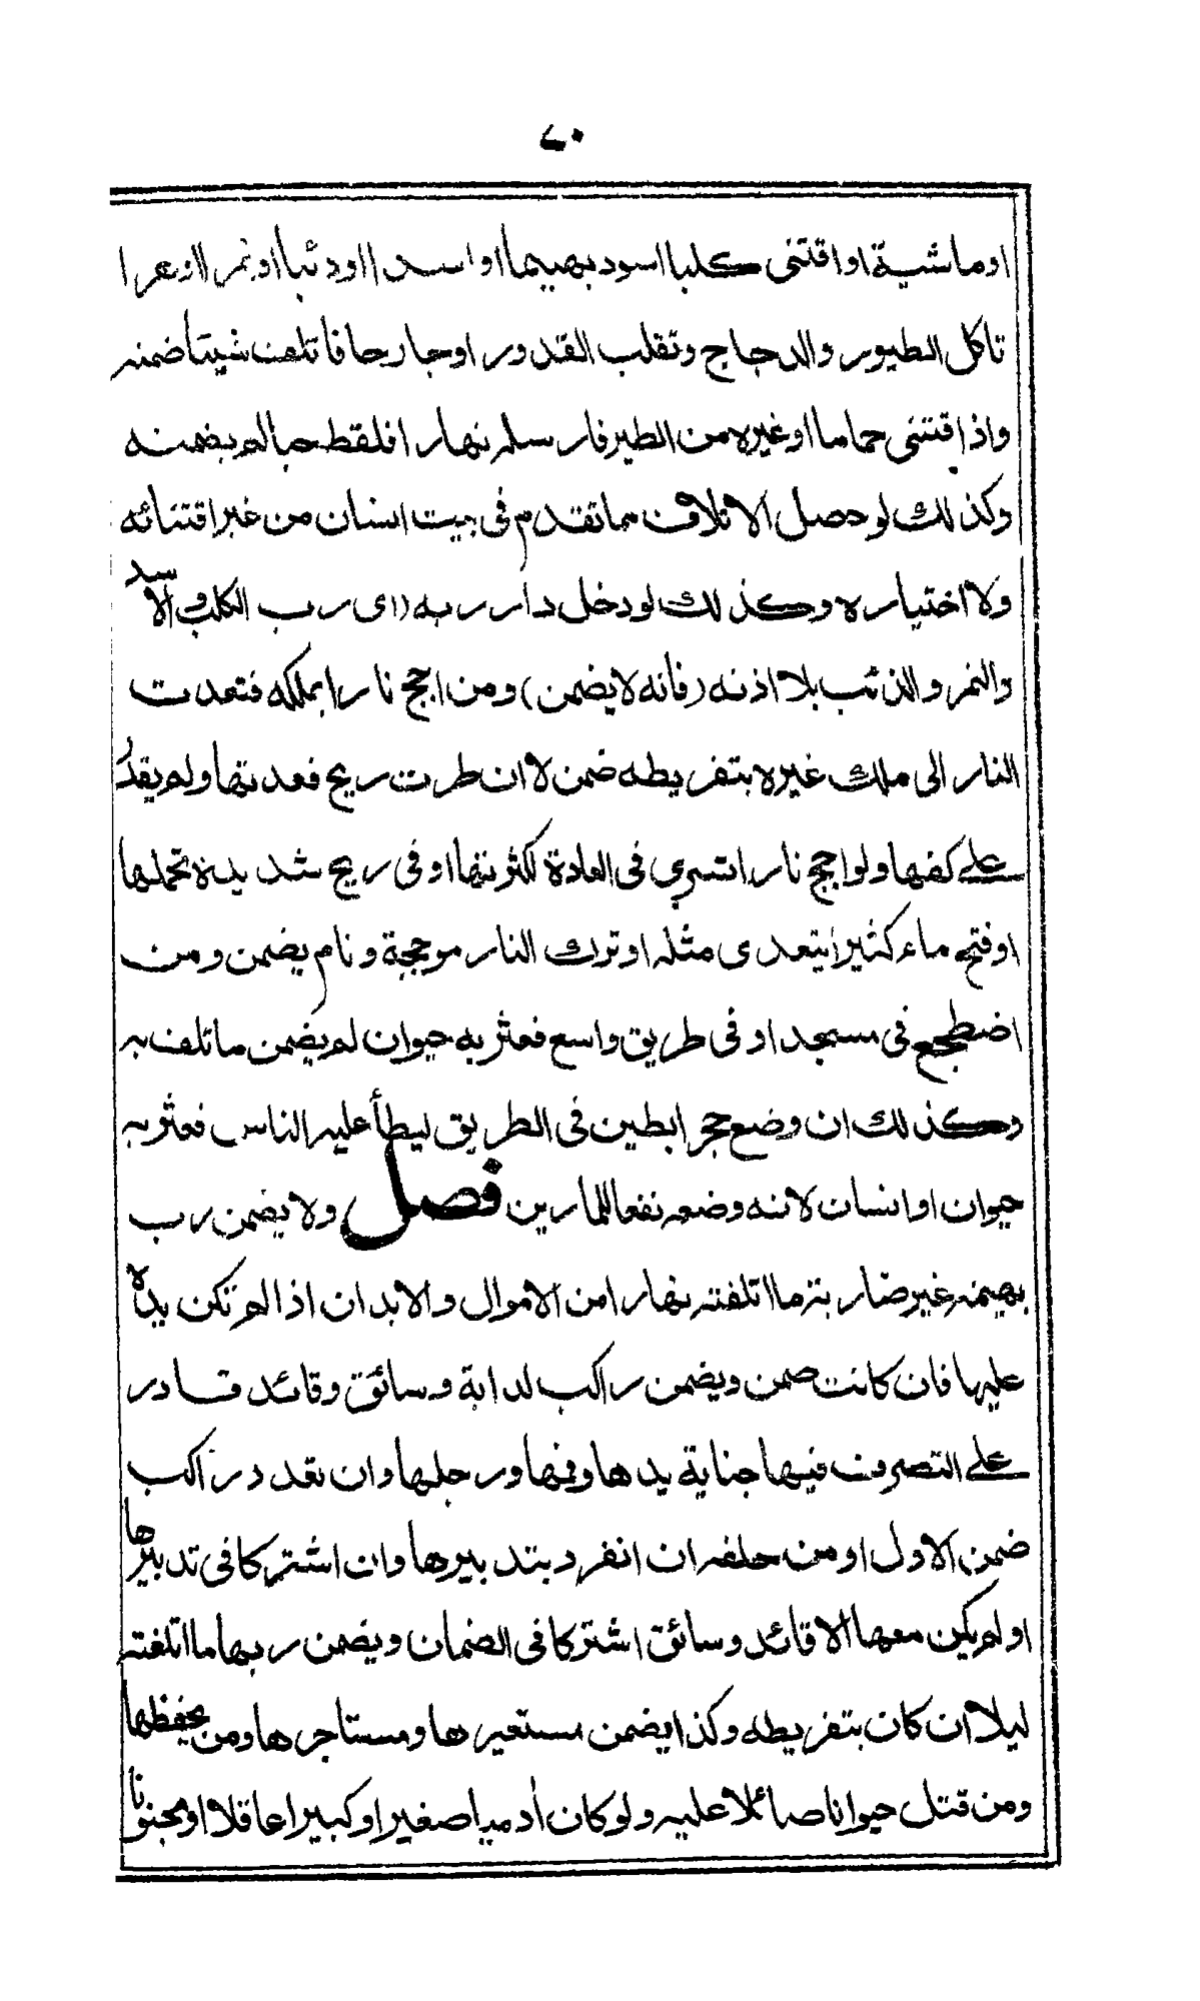 ٧٠
او ماشية او اقتنى كلبا اسود بهيما او اسدا او ذئبا او نمرا او هرا
تاكل الطيور والدجاج وتقلب القدور او جارحا فاتلفت شيئا ضمنه
واذا اقتنى حماما او غيره من الطير فارسله نهارا فلقط حبا لم يضمنه
وكذلك لو حصل الاتلاف مما تقدم في بيت انسان من غير اقتنائه
ولا اختياره وكذلك لو دخل دار ربه (اى رب الكلب والاسد
والنمر والذئب بلا اذنه (فانه لا يضمن) ومن اجج نارا بملكه فتعدت
النار الى ملك غيره بتفريطه ضمن لا ان طرت ريح فعدتها ولم يقدر
على كفها ولو اجج نارا تسري في العادة لكثرتها او في ريح شديدة تحملها
او فتح ماء كثيرا يتعدى مثله او ترك النار موججة ونام يضمن ومن
اضطجع في مسجد او في طريق واسع فعثر به حيوان لم يضمن ما تلف به
وكذلك ان وضع حجرا بطين في الطريق ليطأ عليه الناس فعثر به
حيوان او انسان لانه وضعه نفعا للمارين فصل ولا يضمن رب
بهيمة غير ضارية ما اتلفته نهارا من الاموال والابدان اذا لم تكن يده
عليها فان كانت ضمن ويضمن راكب لدابة وسائق وقائد قادر
على التصرف فيها جناية يدها وفمها ورجلها وان تعدد راكب
ضمن الاول او من خلفه ان انفرد بتدبيرها وان اشتركا في تدبيرها
او لم يكن معها الا قائد وسائق اشتركا في الضمان ويضمن ربها ما اتلفته
ليلا ان كان بتفريطه وكذا يضمن مستعيرها ومستاجرها ومن يحفظها
ومن قتل حيوانا صائلا عليه ولو كان أدميا صغيرا او كبيرا عاقلا او مجنونا